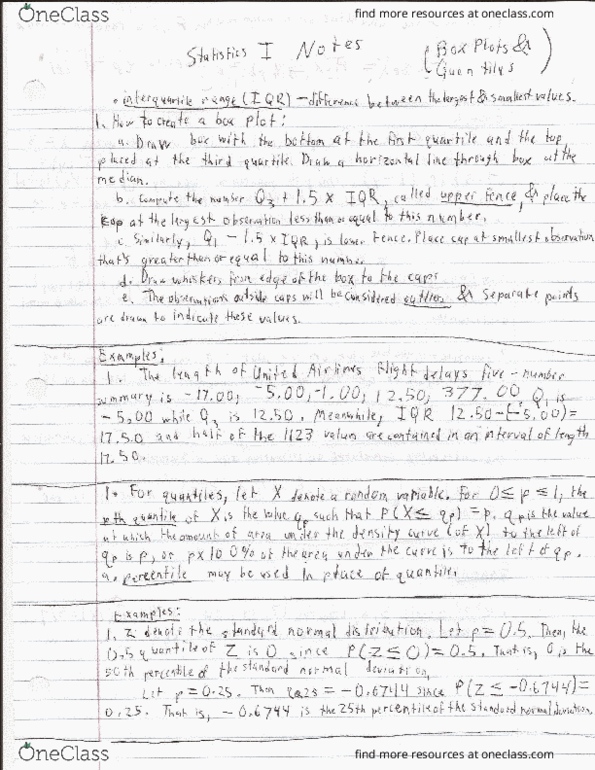 OneClass
find more resources at oneclass.com
Statistics I Notes
(Box Plots &
Quantilys)
• interquartile range (IQR) - difference between the largest & smallest values.
1. How to create a box plot:
a. Draw box with the bottom at the first quartile and the top
placed at the third quartile. Draw a horizontal line through box at the
median.
b. Compute the number Q3 + 1.5 x IQR, called upper fence, & place the
cap at the largest observation less than or equal to this number.
c. Similarly, Q1 - 1.5 x IQR, is lower fence. Place cap at smallest observation
that's greater than or equal to this number.
d. Draw whiskers from edge of the box to the caps
e. The observations outside caps will be considered outliers & separate points
are drawn to indicate these values.
Examples:
1. The length of United Airlines flight delays five-number
summary is -17.00, -5.00, -1.00, 12.50, 377.00 Q1 is
-5.00 while Q3 is 12.50. Meanwhile, IQR 12.50-(-5.00)=
17.50 and half of the 1123 values are contained in an interval of length
17.50.
1. For quantiles, let X denote a random variable. For 0≤p≤1, the
pth quantile of X is the value qp such that P(X≤ qp) = p. qp is the value
at which the amount of area under the density curve (of X) to the left of
qp is p, or px100% of the area under the curve is to the left of qp.
a. percentile may be used in place of quantile.
Examples:
1. Z denote the standard normal distribution. Let p=0.5. Then, the
0.5 quantile of Z is 0 since P(Z≤0)=0.5. That is, 0 is the
50th percentile of the standard normal deviation.
Let p=0.25. Then q0.25 = -0.6744 since P(Z≤-0.6744)=
0.25. That is, -0.6744 is the 25th percentile of the standard normal deviation.
OneClass
find more resources at oneclass.com